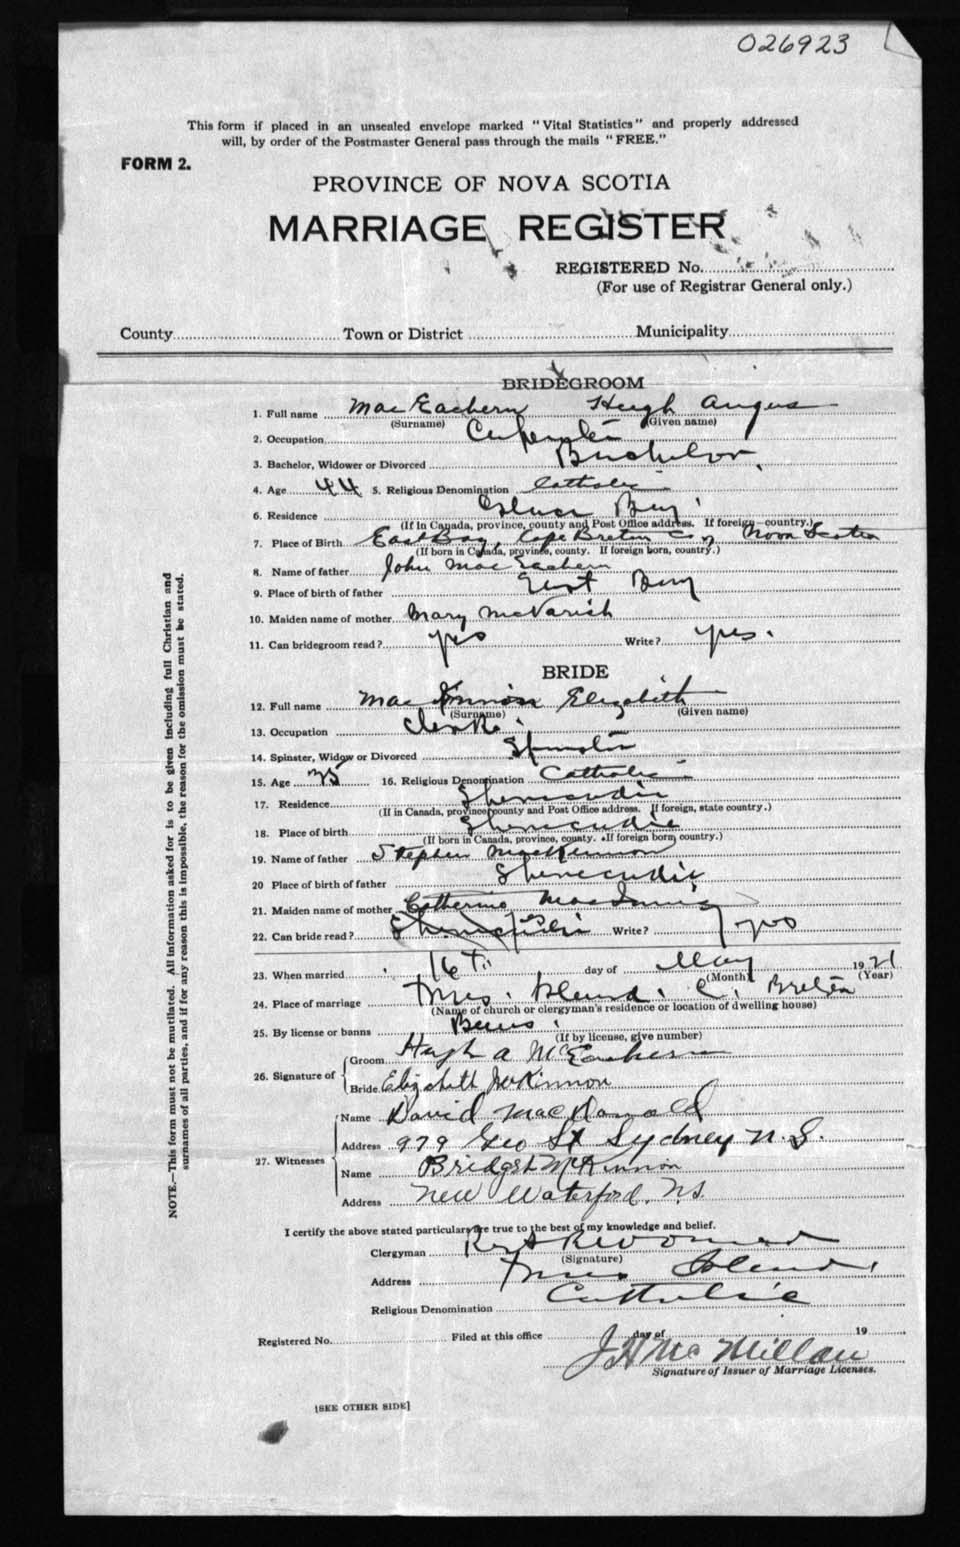 026923
This form if placed in an unsealed envelope marked "Vital Statistics" and properly addressed
will, by order of the Postmaster General pass through the mails "FREE."
FORM 2.
PROVINCE OF NOVA SCOTIA
MARRIAGE REGISTER
REGISTERED No.
(For use of Registrar General only.)
County Town or District Municipality
BRIDEGROOM
1. Full name MacEachern Hugh Angus
(Surname) (Given name)
2. Occupation Carpenter
3. Bachelor, Widower or Divorced Bachelor
4. Age 44 5. Religious Denomination Catholic
6. Residence Glace Bay
(If In Canada, province, county and Post Office address. If foreign—country.)
7. Place of Birth East Bay, Cape Breton Co, Nova Scotia
(If born in Canada, province, county. If foreign born, country.)
8. Name of father John MacEachern
9. Place of birth of father East Bay
10. Maiden name of mother Mary McVarish
11. Can bridegroom read? yes Write? yes.
BRIDE
12. Full name Elizabeth
(Surname) (Given name)
13. Occupation Clerk.
14. Spinster, Widow or Divorced Spinster
15. Age 16. Religious Denomination Catholic
17. Residence Shenacadie
(If in Canada, province county and Post Office address. If foreign, state country.)
18. Place of birth Shenacadie
(If born in Canada, province, county. If foreign born, country.)
19. Name of father Stephen MacKinnon
20 Place of birth of father Shenacadie
21. Maiden name of mother Catherine MacInnis
22. Can bride read? yes Write? yes
23. When married 16th day of May 1921
(Month) (Year)
24. Place of marriage Island. C. Breton
(Name of church or clergyman's residence or location of dwelling house)
25. By license or banns Banns.
(If by license, give number)
26. Signature of Groom Hugh A McEachern
Bride Elizabeth McKinnon
27. Witnesses Name David MacDonald
Address 979 Geo St Sydney N.S.
Name Bridget McKinnon
Address New Waterford. N.S.
I certify the above stated particulars are true to the best of my knowledge and belief.
Clergyman
(Signature)
Address Island
Religious Denomination Catholic
Registered No. Filed at this office day of 19
J H McMillan
Signature of Issuer of Marriage Licenses.
[SEE OTHER SIDE]
NOTE.—This form must not be mutilated. All information asked for is to be given including full Christian and
surnames of all parties, and if for any reason this is impossible, the reason for the omission must be stated.